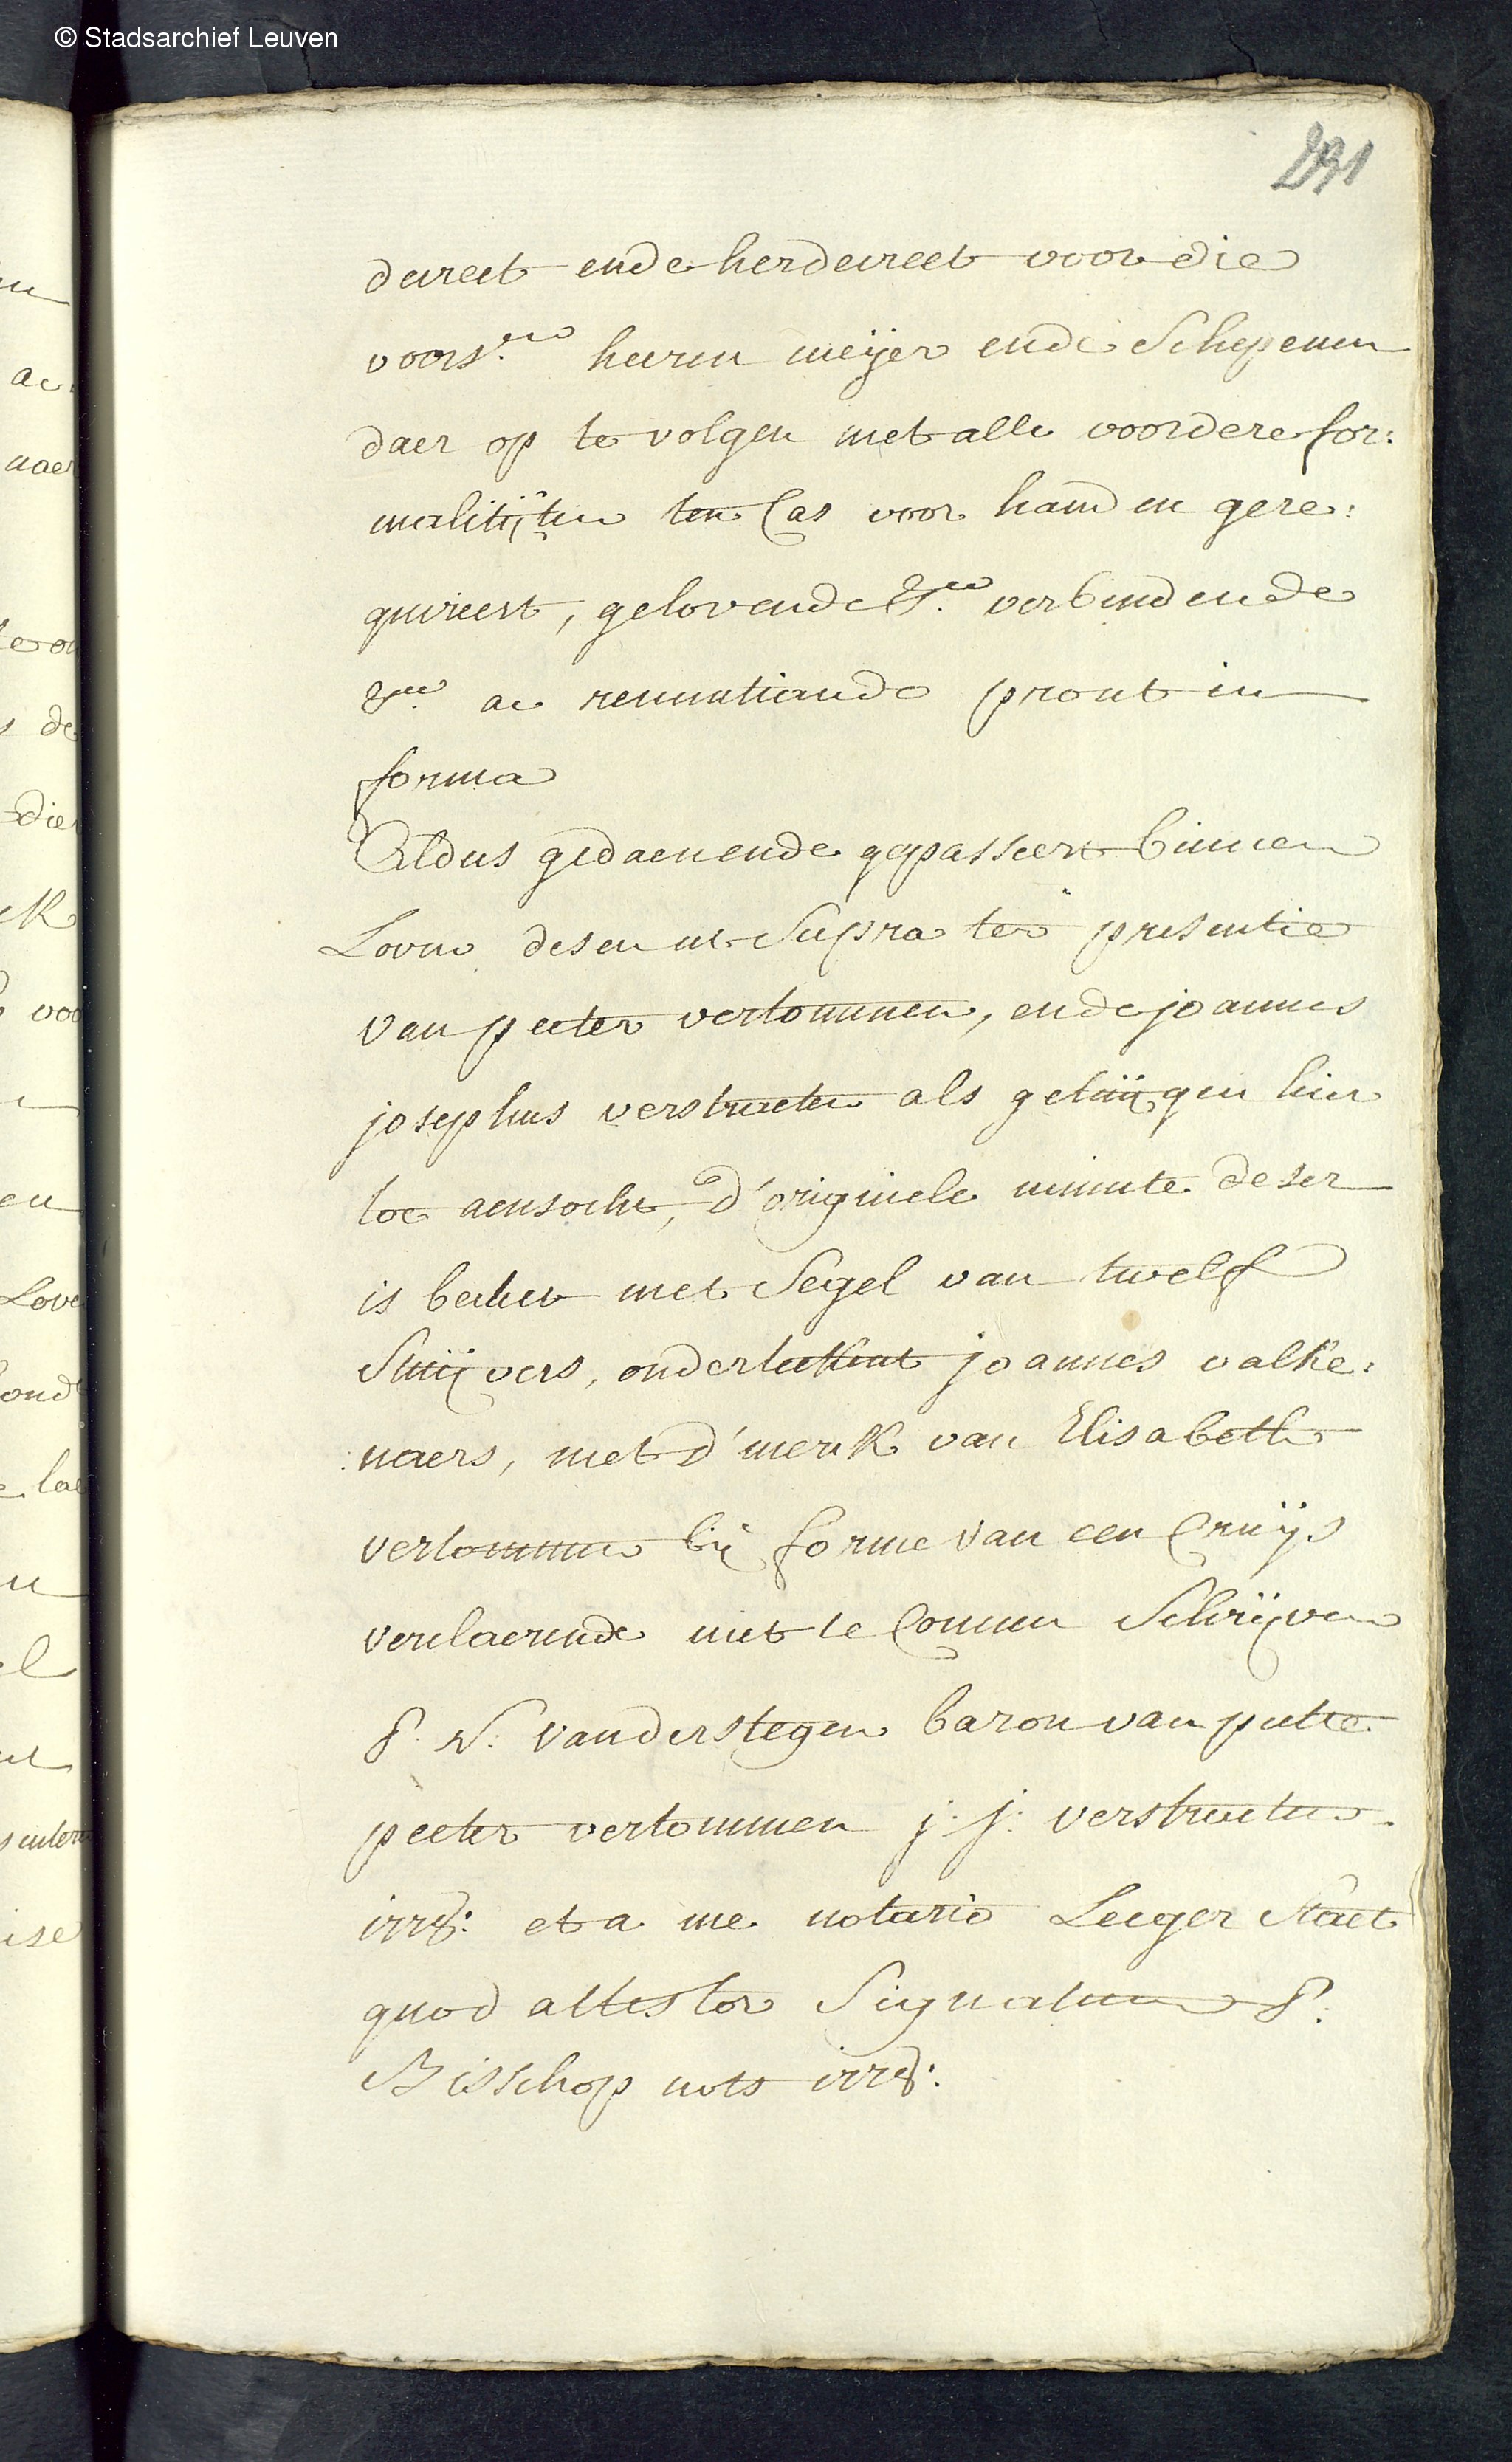 © Stadsarchief Leuven
291
decreet ende herdecreet voor die
voors.en heeren meijer ende Schepenen
daer op te volgen met alle voordere for:
malitijten ten Cas voor handen gere:
quireert, gelovende &.ra verbindende
&.ra ac renuntiando prout in
forma
Aldus gedaen ende gepasseert binnen
Loven desen ut Supra ter presentie
van peeter vertommen, ende joannes
josephus verstraeten als getuijgen hier
toe aensocht, d'originele minute deser
is becleet met Segel van twelf
Stuijvers, onderteekent joannes valke:
:naers, met d'merck van Elisabeth
vertommen bij forme van een Cruijs
verclaerende niet te Connen Schrijven
P. N. vanderstegen baron van putte
peeter vertommen j: j: verstraeten
irrs: et a me notario Leeger Staet
quod attestor Signatum P:
Bisschop nots irrs: